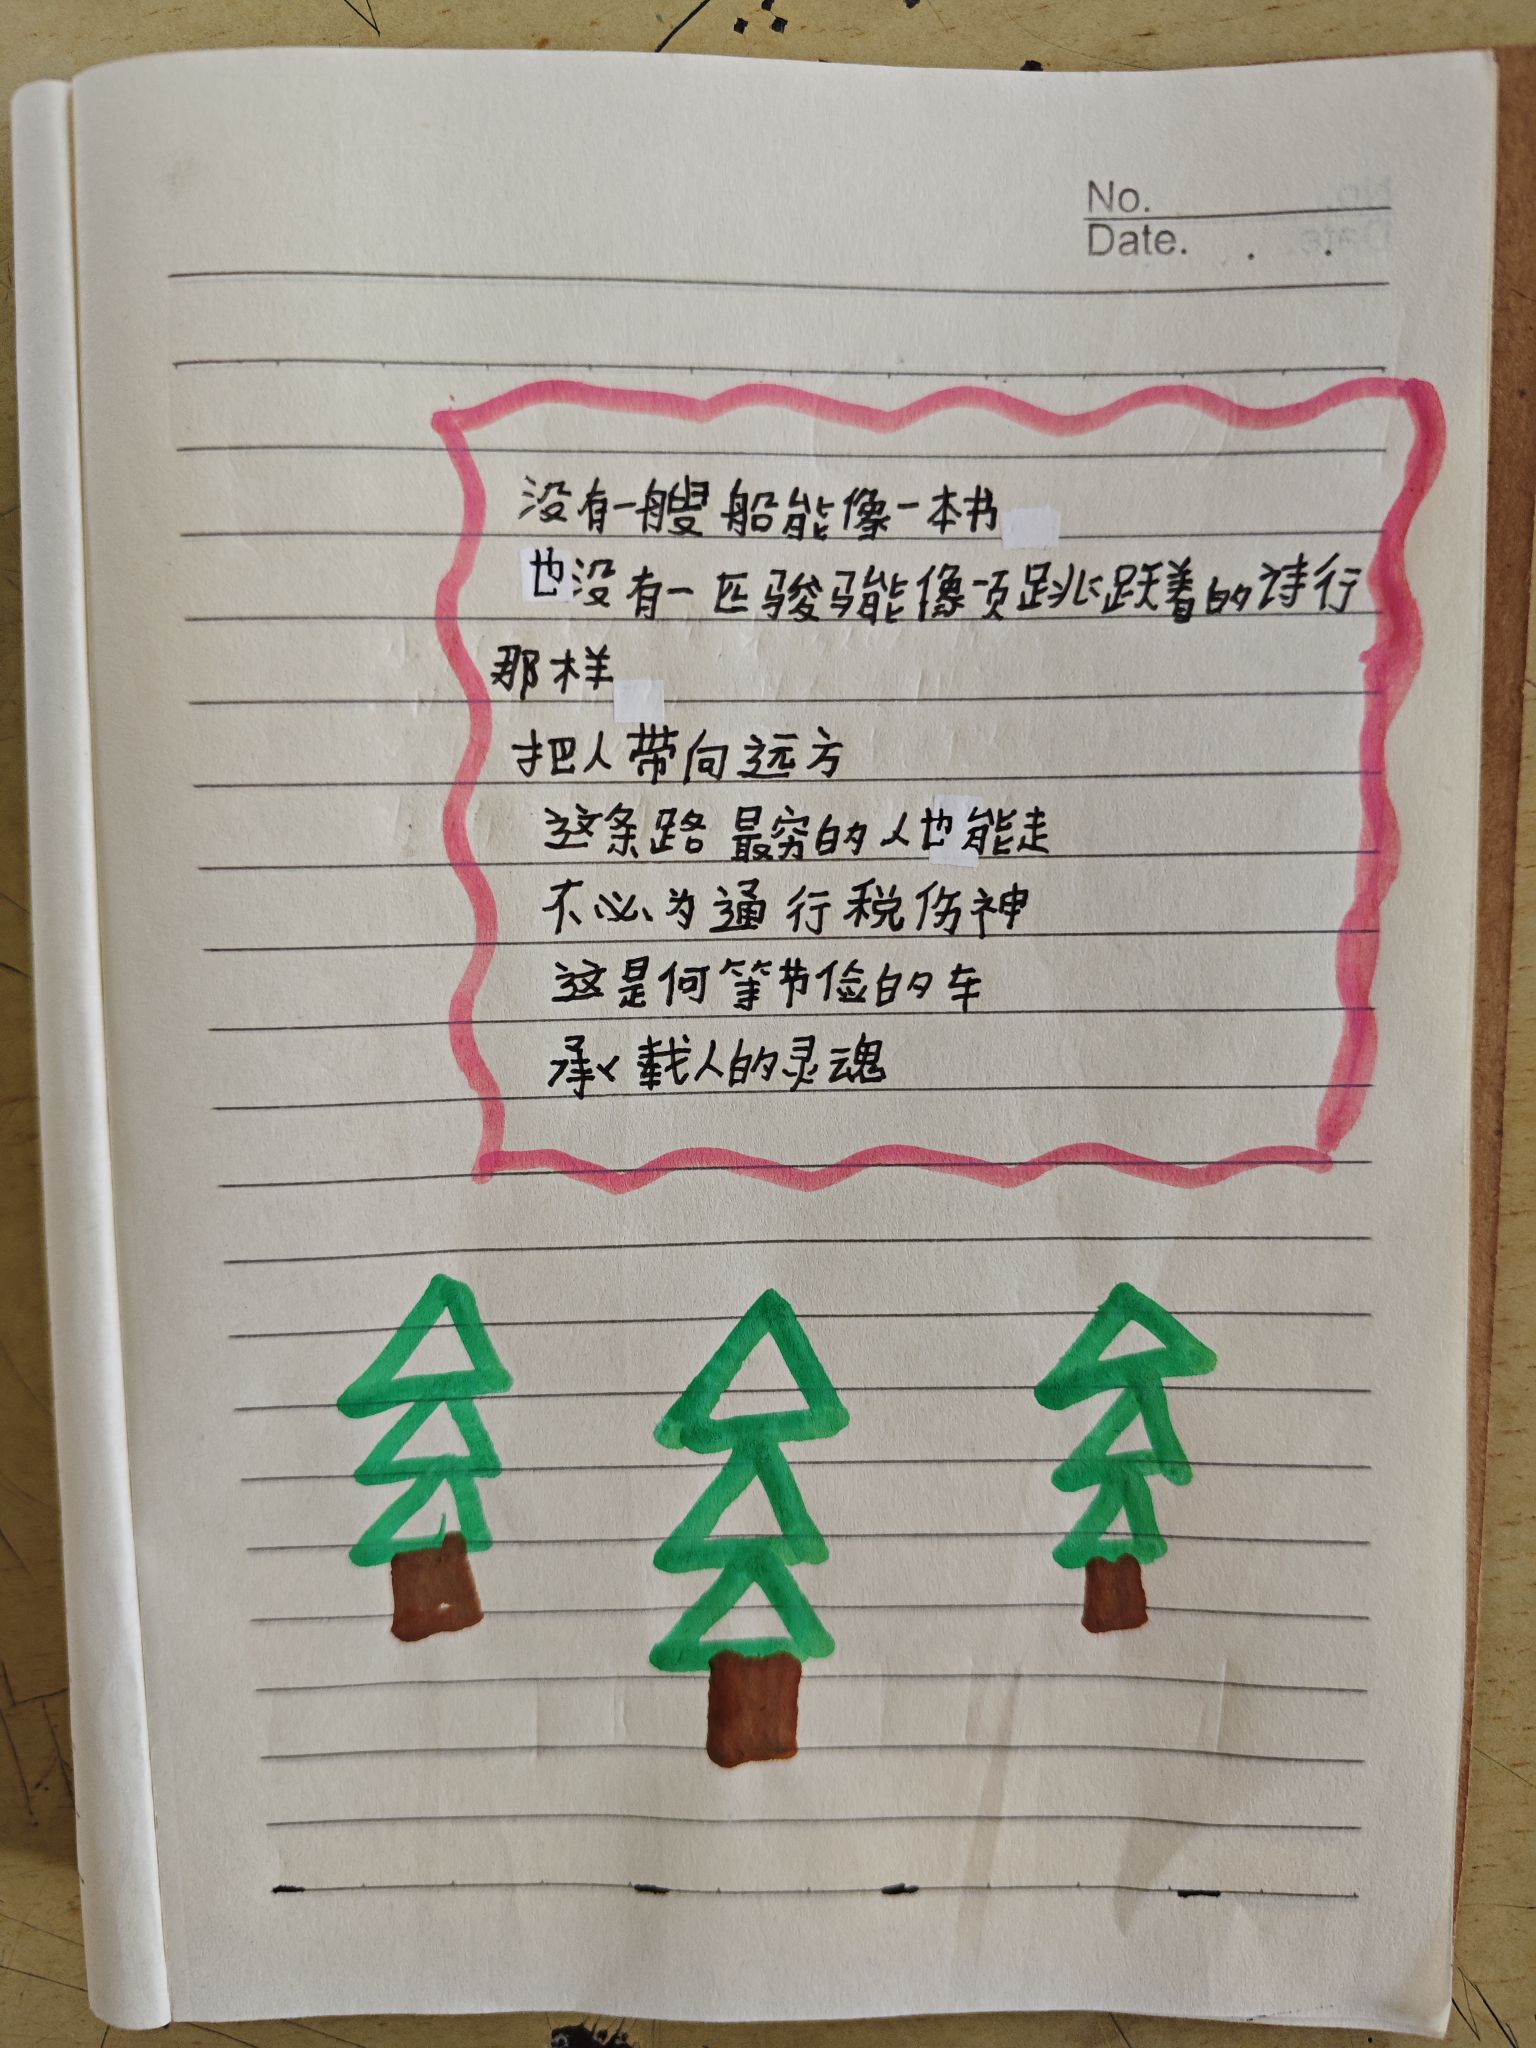 No.
Date. . .
没有一艘船能像一本书
也没有一匹骏马能像一页跳跃着的诗行
那样
把人带向远方
这条路最穷的人也能走
不必为通行税伤神
这是何等节俭的车
承载人的灵魂